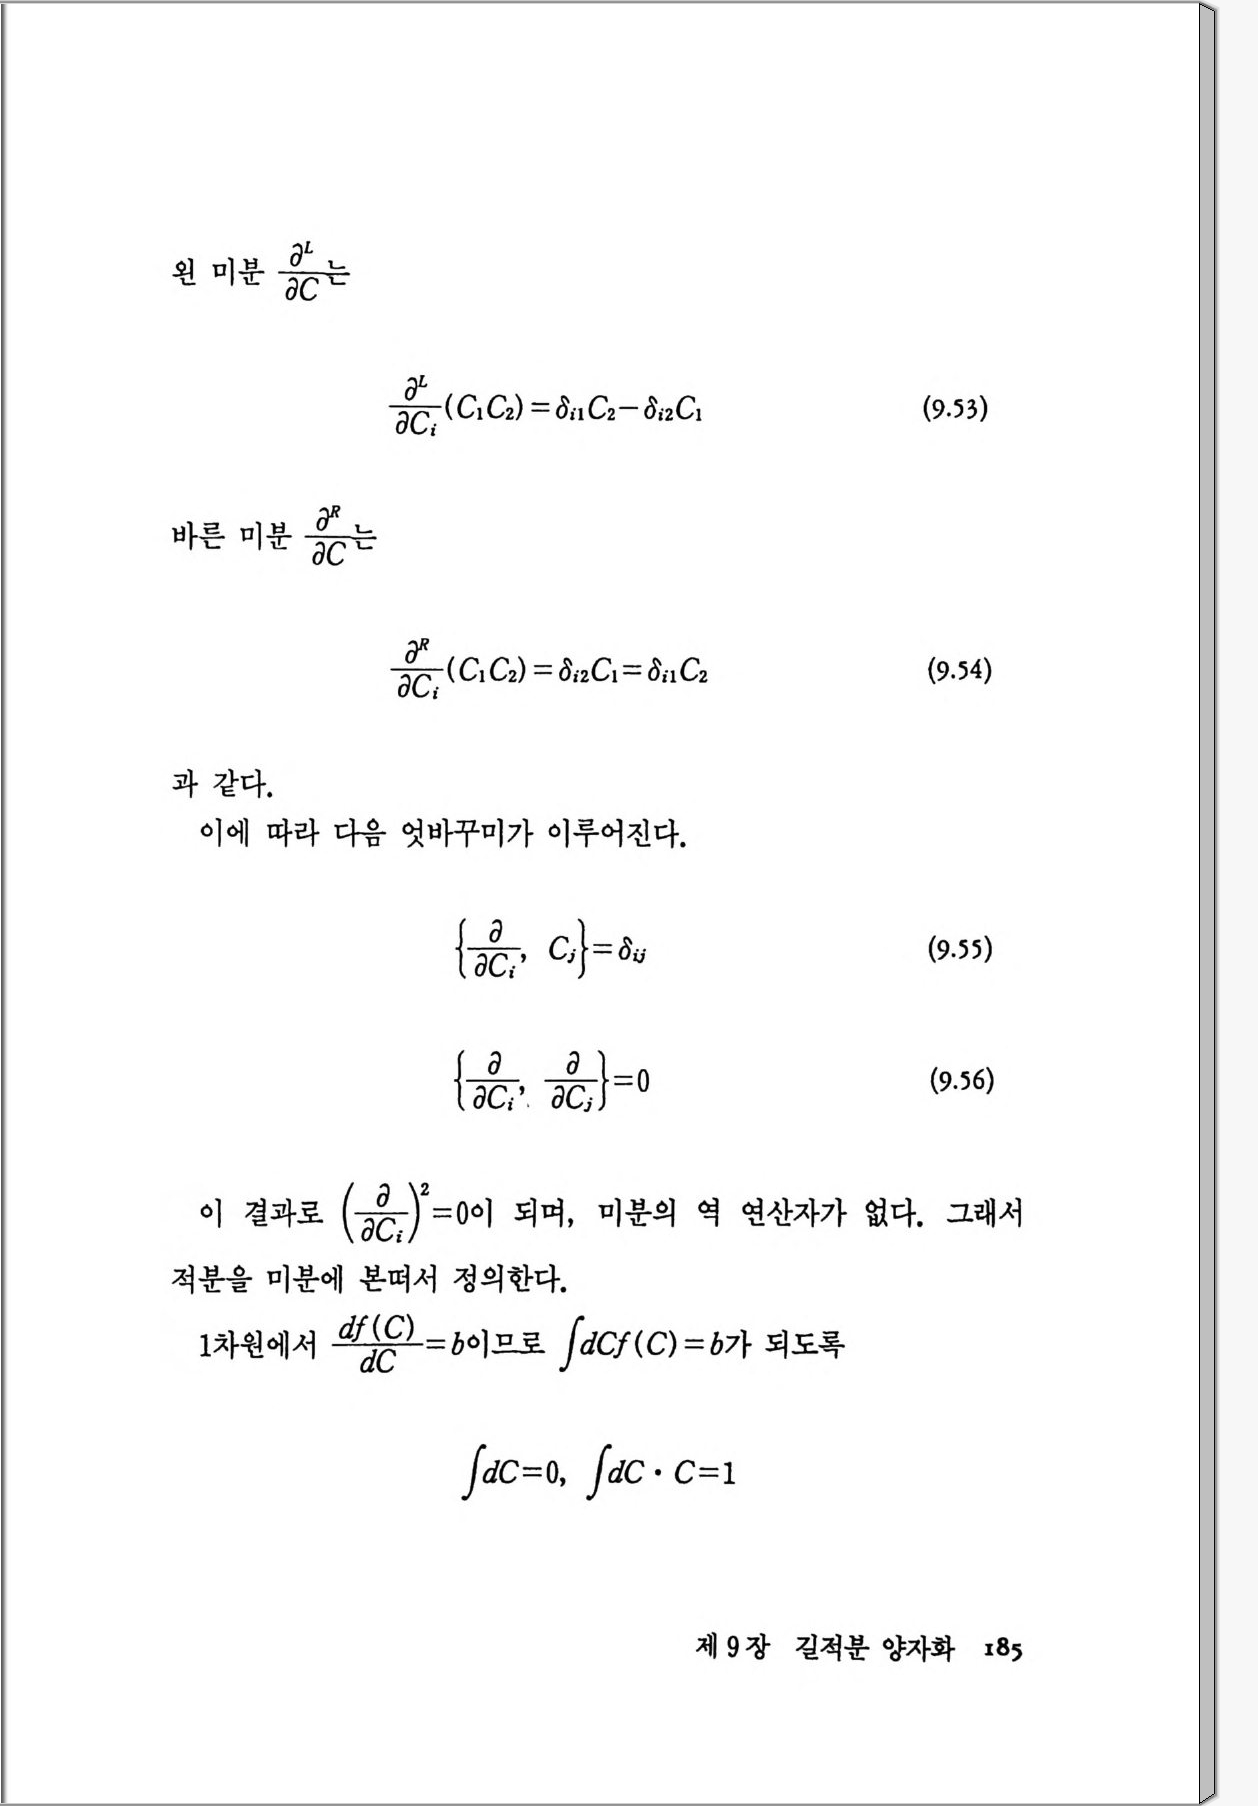 왼 미분 $\frac{\partial^L}{\partial C}$는
$\frac{\partial^L}{\partial C_i}(C_1C_2)=\delta_{i1}C_2-\delta_{i2}C_1$ (9.53)
바른 미분 $\frac{\partial^R}{\partial C}$는
$\frac{\partial^R}{\partial C_i}(C_1C_2)=\delta_{i2}C_1=\delta_{i1}C_2$ (9.54)
과 같다.
이에 따라 다음 엇바꾸미가 이루어진다.
$\left\{\frac{\partial}{\partial C_i}, C_j\right\}=\delta_{ij}$ (9.55)
$\left\{\frac{\partial}{\partial C_i}, \frac{\partial}{\partial C_j}\right\}=0$ (9.56)
이 결과로 $\left(\frac{\partial}{\partial C_i}\right)^2=0$이 되며, 미분의 역 연산자가 없다. 그래서
적분을 미분에 본떠서 정의한다.
1차원에서 $\frac{df(C)}{dC}=b$이므로 $\int dCf(C)=b$가 되도록
$\int dC=0, \int dC \cdot C=1$
제 9 장 길적분 양자화 185